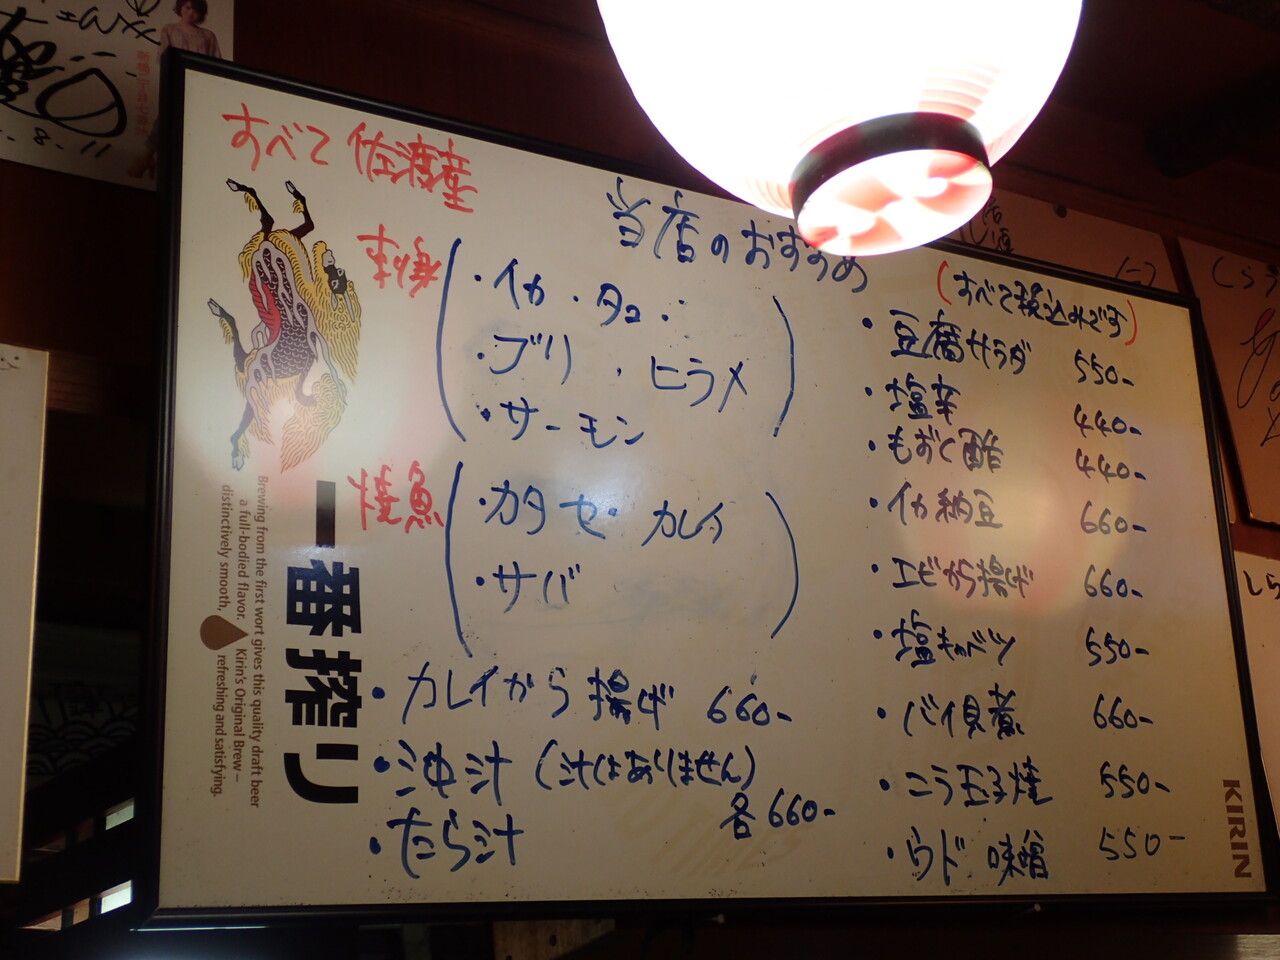 すべて 佐渡産
当店のおすすめ
(すべて税込みです)
刺身
・イカ ・タコ・
・ブリ ・ヒラメ
・サーモン
焼魚
・カタセ・カレイ
・サバ
・カレイから揚げ 660-
・沖汁 (汁はありません)
・たら汁
各660-
・豆腐サラダ 550-
・塩辛 440-
・もずく酢 440-
・イカ納豆 660-
・エビから揚げ 660-
・塩キャベツ 550-
・バイ貝煮 660-
・ニラ玉子焼 550-
・ウド味噌 550-
一番搾り
Brewing from the first wort gives this quality draft beer
a full-bodied flavor. Kirin's Original Brew –
distinctively smooth, refreshing and satisfying.
KIRIN
8.11